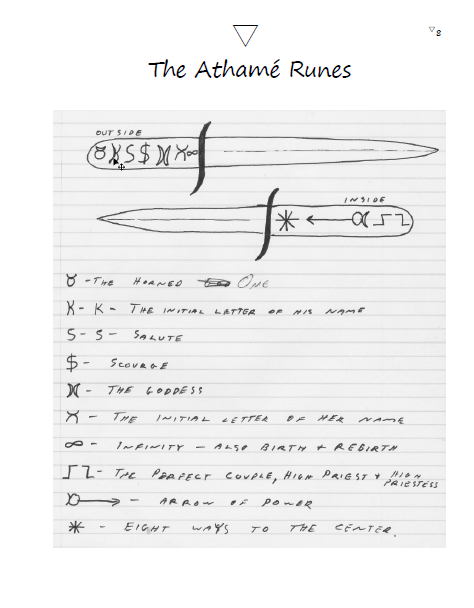 8
The Athamé Runes
OUTSIDE
INSIDE
♉ - THE HORNED ONE
K - K - THE INITIAL LETTER OF HIS NAME
S - S - SALUTE
$ - SCOURGE
- THE GODDESS
- THE INITIAL LETTER OF HER NAME
∞ - INFINITY - ALSO BIRTH + REBIRTH
- THE PERFECT COUPLE, HIGH PRIEST + HIGH PRIESTESS
- ARROW OF POWER
- EIGHT WAYS TO THE CENTER.